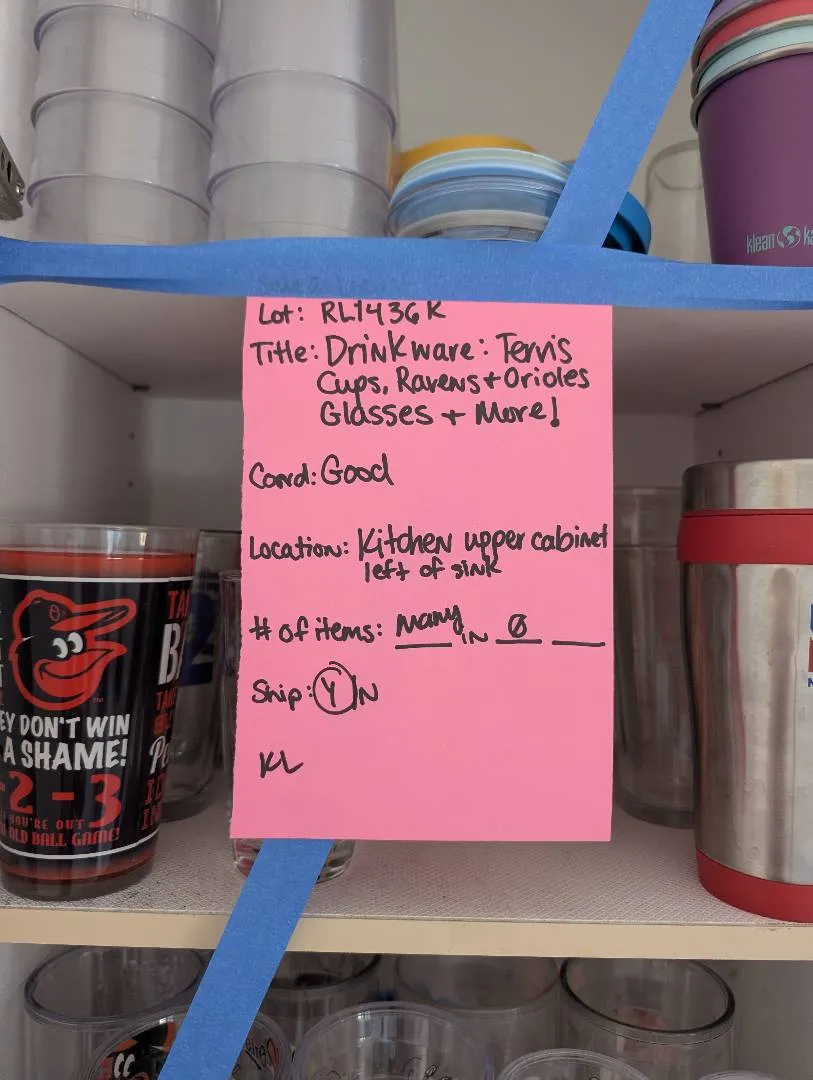 klean
Lot: RL1436K
Title: Drinkware: Tervis
Cups, Ravens + Orioles
Glasses + More!
Cond: Good
Location: Kitchen upper cabinet
left of sink
# of items: Many IN Ø
Ship: Y/N
KL
EY DON'T WIN
A SHAME!
-2-3
YOU'RE OUT
OLD BALL GAME!